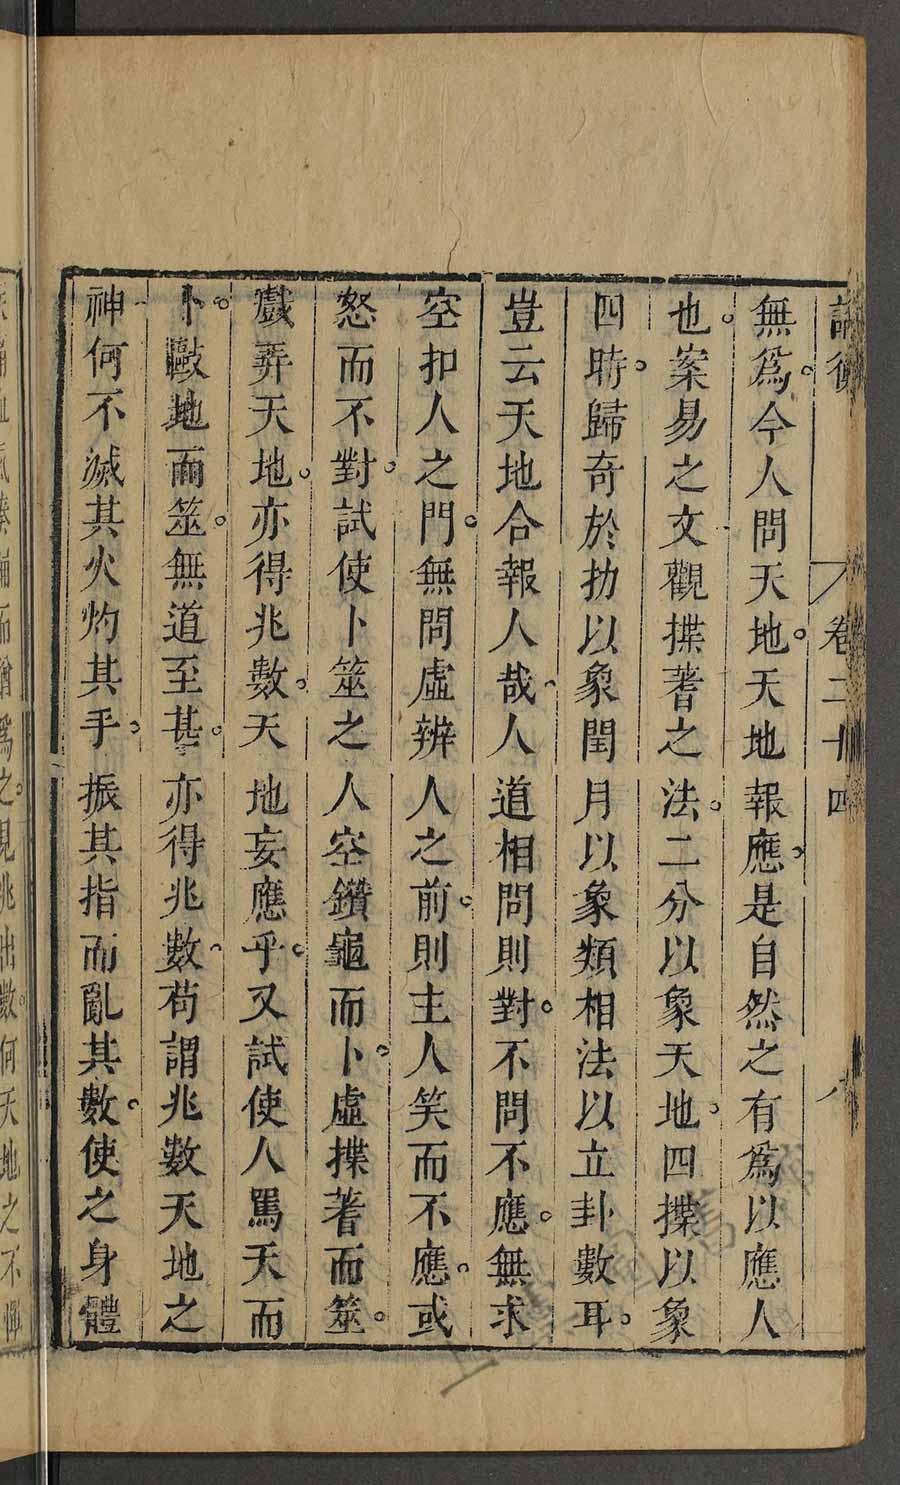 論衡 卷二十四 八
無爲今人問天地天地報應是自然之有爲以應人
也案易之文觀揲蓍之法二分以象天地四揲以象
四時歸奇於扐以象閏月以象類相法以立卦數耳
豈云天地合報人哉人道相問則對不問不應無求
空扣人之門無問虛辨人之前則主人笑而不應或
怒而不對試使卜筮之人空鑽龜而卜虛揲蓍而筮
戲弄天地亦得兆數天地妄應乎又試使人罵天而
卜毆地而筮無道至甚亦得兆數苟謂兆數天地之
神何不滅其火灼其手振其指而亂其數使之身體
之見兆出數何天地之不憚